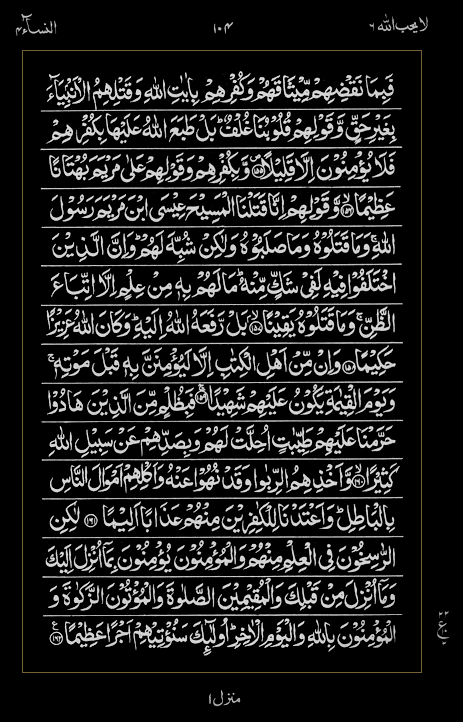 لا یحب الله ٦ ١٠٤ النسآء ٤
فَبِمَا نَقْضِهِمْ مِّيْثَاقَهُمْ وَكُفْرِهِمْ بِاٰيٰتِ اللّٰهِ وَقَتْلِهِمُ الْاَنْۢبِيَآءَ
بِغَيْرِ حَقٍّ وَّقَوْلِهِمْ قُلُوْبُنَا غُلْفٌ ؕ بَلْ طَبَعَ اللّٰهُ عَلَيْهَا بِكُفْرِهِمْ
فَلَا يُؤْمِنُوْنَ اِلَّا قَلِيْلًا ﴿۱۵۵﴾ وَّبِكُفْرِهِمْ وَقَوْلِهِمْ عَلٰى مَرْيَمَ بُهْتَانًا
عَظِيْمًا ﴿۱۵۶﴾ وَّقَوْلِهِمْ اِنَّا قَتَلْنَا الْمَسِيْحَ عِيْسَى ابْنَ مَرْيَمَ رَسُوْلَ
اللّٰهِ ۚ وَمَا قَتَلُوْهُ وَمَا صَلَبُوْهُ وَلٰكِنْ شُبِّهَ لَهُمْ ؕ وَاِنَّ الَّذِيْنَ
اخْتَلَفُوْا فِيْهِ لَفِيْ شَكٍّ مِّنْهُ ؕ مَا لَهُمْ بِهٖ مِنْ عِلْمٍ اِلَّا اتِّبَاعَ
الظَّنِّ ۚ وَمَا قَتَلُوْهُ يَقِيْنًا ﴿۱۵۷﴾ بَلْ رَّفَعَهُ اللّٰهُ اِلَيْهِ ؕ وَكَانَ اللّٰهُ عَزِيْزًا
حَكِيْمًا ﴿۱۵۸﴾ وَاِنْ مِّنْ اَهْلِ الْكِتٰبِ اِلَّا لَيُؤْمِنَنَّ بِهٖ قَبْلَ مَوْتِهٖ ۚ
وَيَوْمَ الْقِيٰمَةِ يَكُوْنُ عَلَيْهِمْ شَهِيْدًا ﴿۱۵۹﴾ فَبِظُلْمٍ مِّنَ الَّذِيْنَ هَادُوْا
حَرَّمْنَا عَلَيْهِمْ طَيِّبٰتٍ اُحِلَّتْ لَهُمْ وَبِصَدِّهِمْ عَنْ سَبِيْلِ اللّٰهِ
كَثِيْرًا ﴿۱۶۰﴾ وَّاَخْذِهِمُ الرِّبٰوا وَقَدْ نُهُوْا عَنْهُ وَاَكْلِهِمْ اَمْوَالَ النَّاسِ
بِالْبَاطِلِ ؕ وَاَعْتَدْنَا لِلْكٰفِرِيْنَ مِنْهُمْ عَذَابًا اَلِيْمًا ﴿۱۶۱﴾ لٰكِنِ
الرّٰسِخُوْنَ فِي الْعِلْمِ مِنْهُمْ وَالْمُؤْمِنُوْنَ يُؤْمِنُوْنَ بِمَآ اُنْزِلَ اِلَيْكَ
وَمَآ اُنْزِلَ مِنْ قَبْلِكَ وَالْمُقِيْمِيْنَ الصَّلٰوةَ وَالْمُؤْتُوْنَ الزَّكٰوةَ وَ
الْمُؤْمِنُوْنَ بِاللّٰهِ وَالْيَوْمِ الْاٰخِرِ ؕ اُولٰٓئِكَ سَنُؤْتِيْهِمْ اَجْرًا عَظِيْمًا ﴿۱۶۲﴾
منزل ١